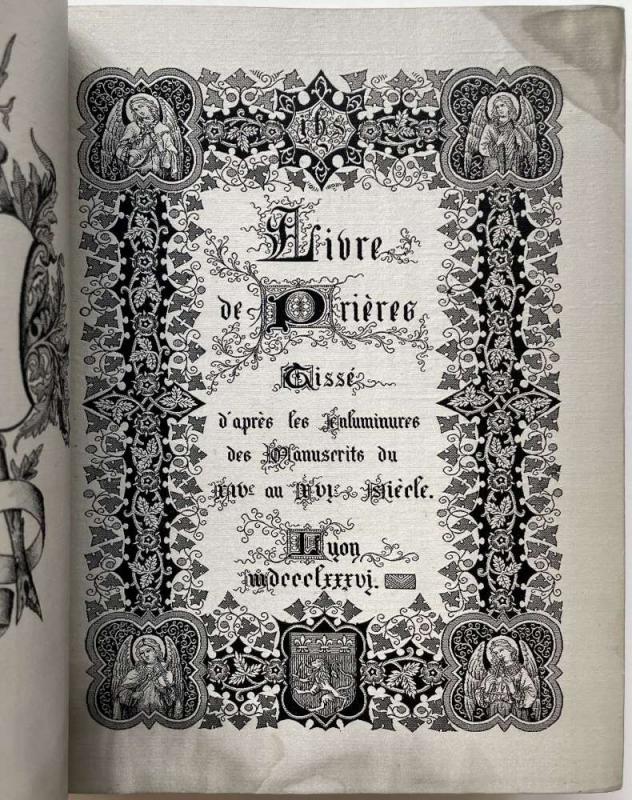 ihs
Livre
de Prières
Tissé
d'après les Enluminures
des Manuscrits du
XIVe au XVIe Siècle.
Lyon
mdccclxxxvi.